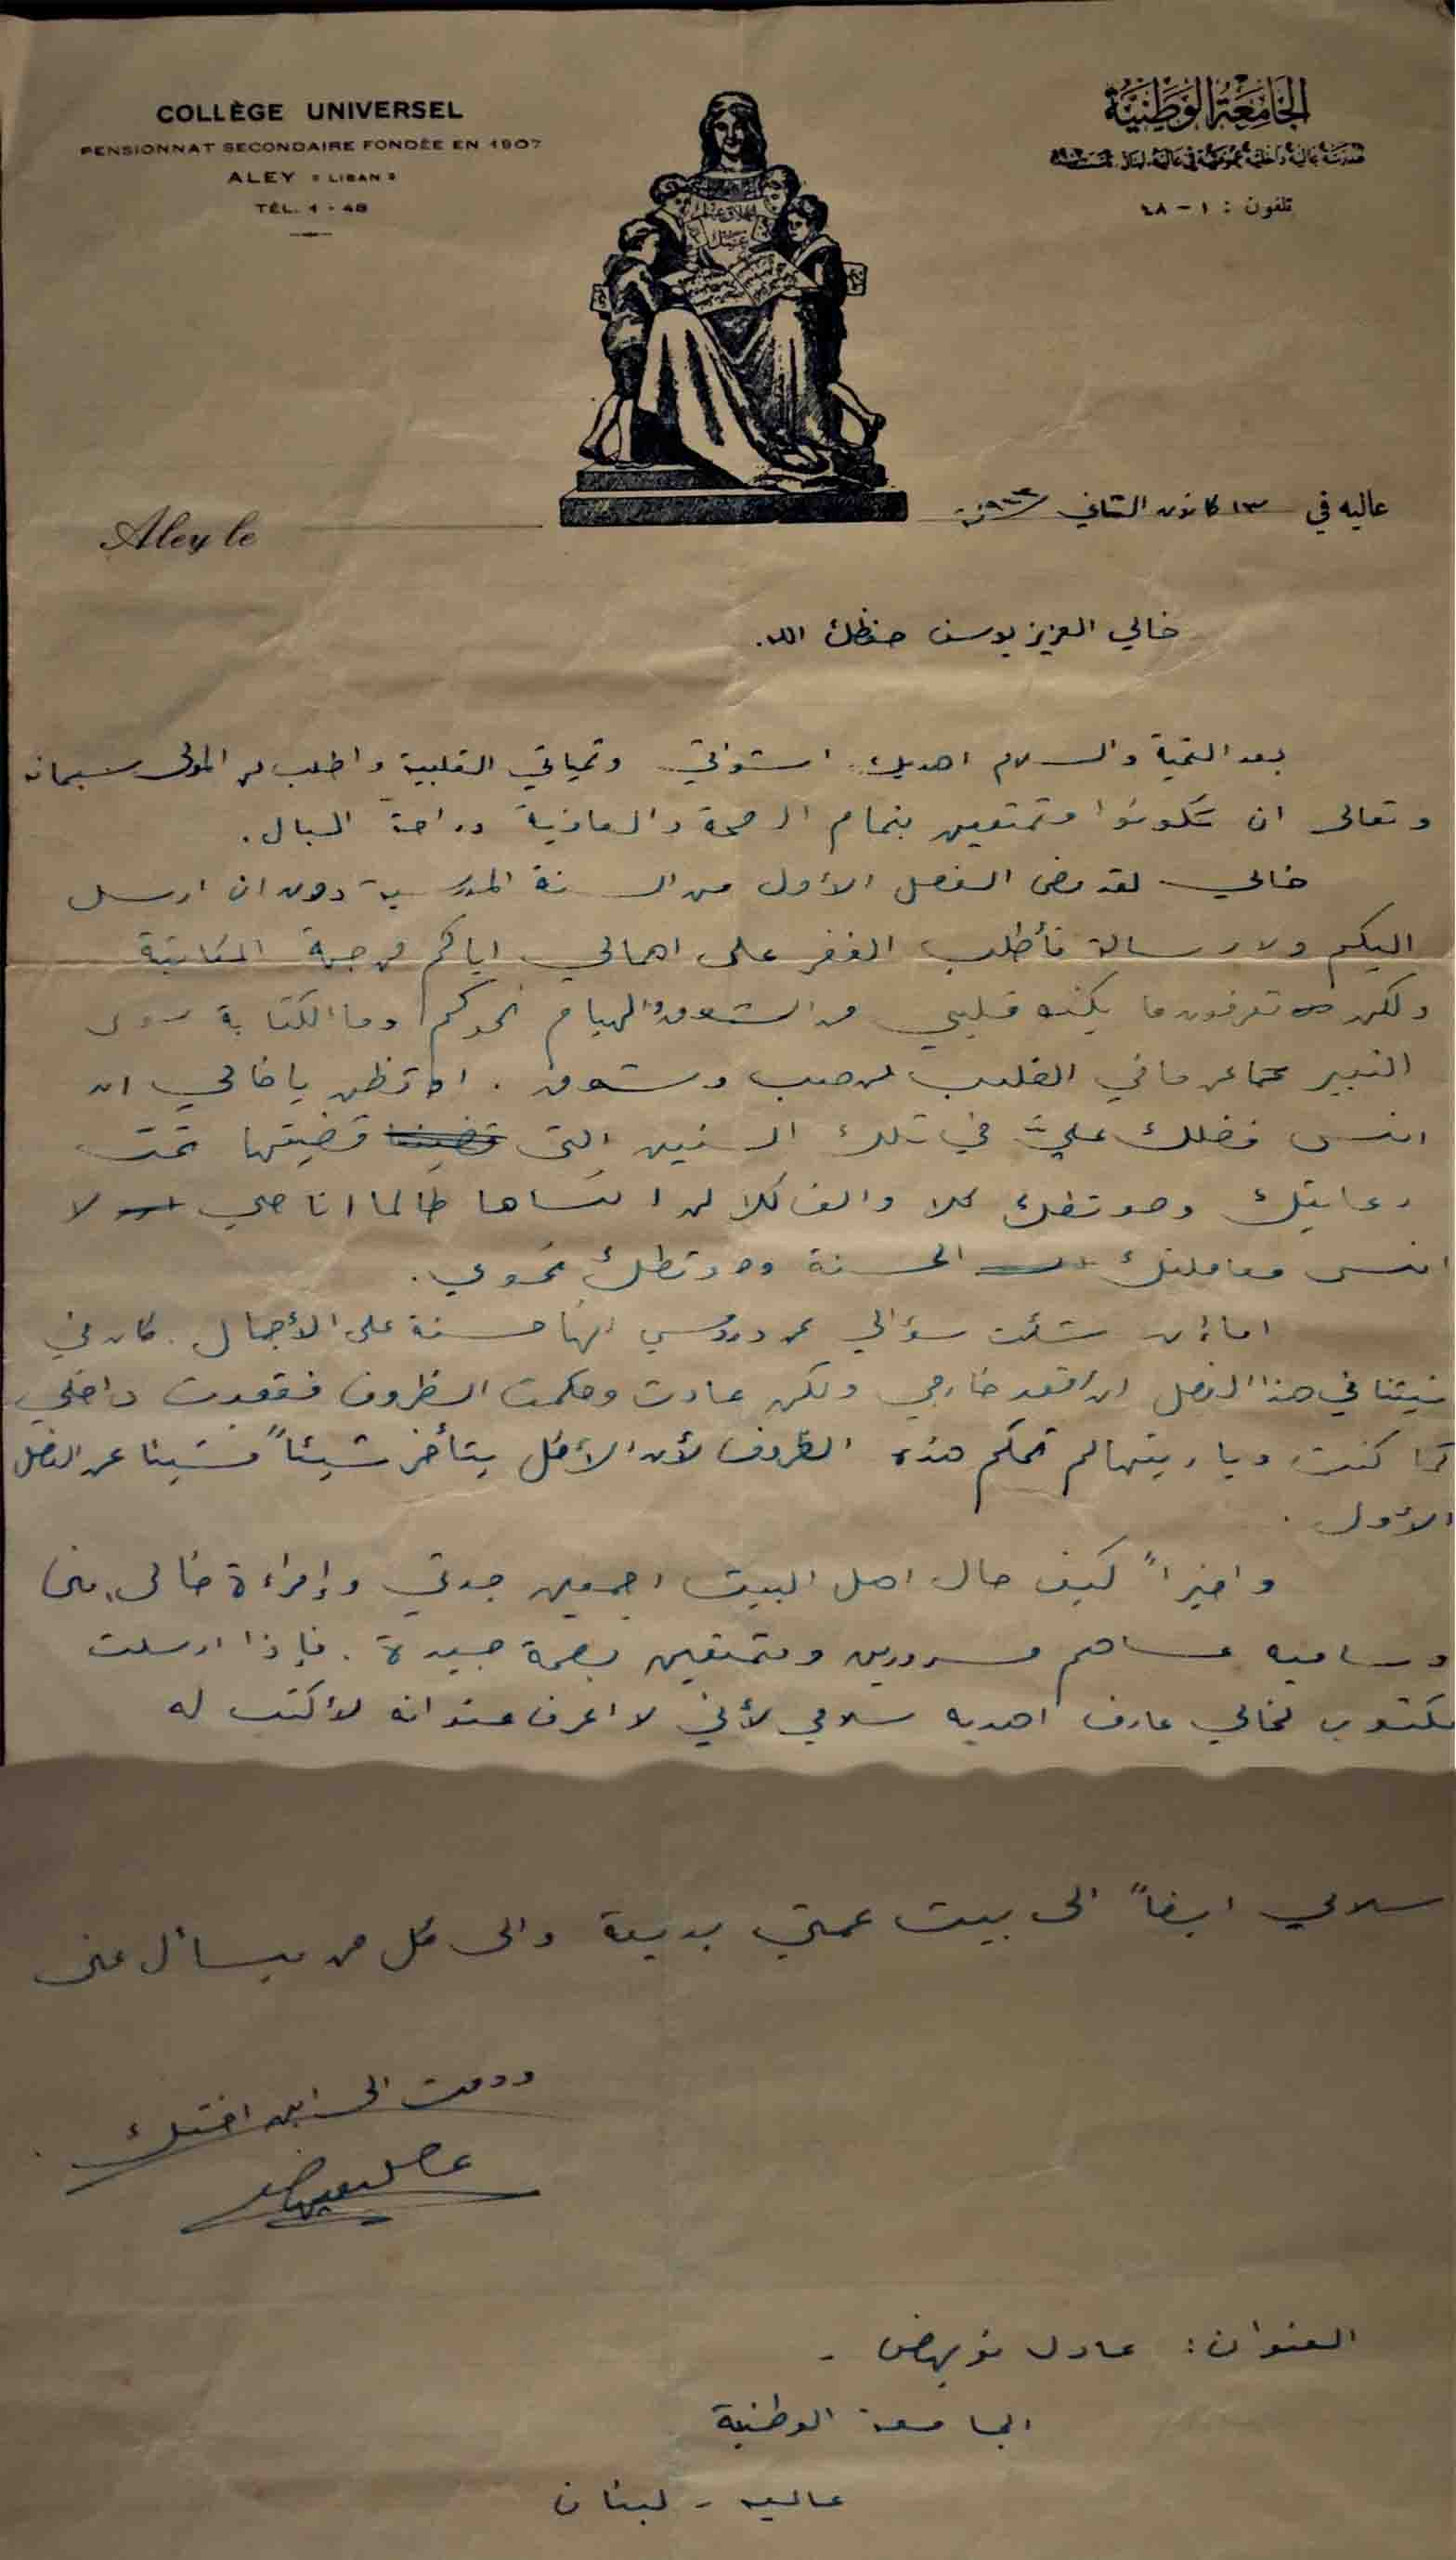 COLLÈGE UNIVERSEL
PENSIONNAT SECONDAIRE FONDÉE EN 1907
ALEY "LIBAN"
TÉL. 1 - 48
الجامعة الوطنية
تلفون : ١ - ٤٨
Aley le
عاليه في ١٣ كانون الثاني سنة
خالي العزيز يوسف حفظك الله.
بعد التحية والسلام اهديك اشواقي وتحياتي القلبية واطلب من المولى سبحانه
وتعالى ان تكونوا متمتعين بتمام الصحة والعافية وراحة البال.
خالي لقد مضى الفصل الأول من السنة المدرسية دون ان ارسل
اليكم ولا رسالة فأطلب الغفر على اهمالي اياكم من جهة المكاتبة
ولكن تعرفون ما يكنه قلبي من الشوق والهيام نحوكم وما الكتابة سوى
التعبير عما في القلب من حب وشوق. اوتظن يا خالي ان
انسى فضلك عليّ في تلك السنين التي قضيتها تحت
رعايتك وعطفك كلا والف كلا لن انساها طالما انا حي لا
انسى معاملتك الحسنة وعطفك نحوي.
اما إن شئت سؤالي عن دروسي انها حسنة على الأجمال. كان في
نيتنا في هذا الفصل ان اقعد خارجي ولكن عادت وحكمت الظروف فقعدت داخلي
كما كنت ويا ريتها لم تحكم هذه الظروف لأن الأكل يتأخر شيئاً فشيئا عن الفصل
الأول.
واخيراً كيف حال اهل البيت اجمعين جدتي وإمراءة خالي منى
وساميه عساهم مسرورين ومتمتعين بصحة جيدة. فإذا ارسلت
مكتوب لخالي عارف اهديه سلامي لأني لا اعرف عنوانه لأكتب له
سلامي ايضاً الى بيت عمتي بديعة والى كل من يسأل عني
ودمت الى ابن اختك
عادل نويهض
العنوان : عادل نويهض -
الجامعة الوطنية
عاليه - لبنان